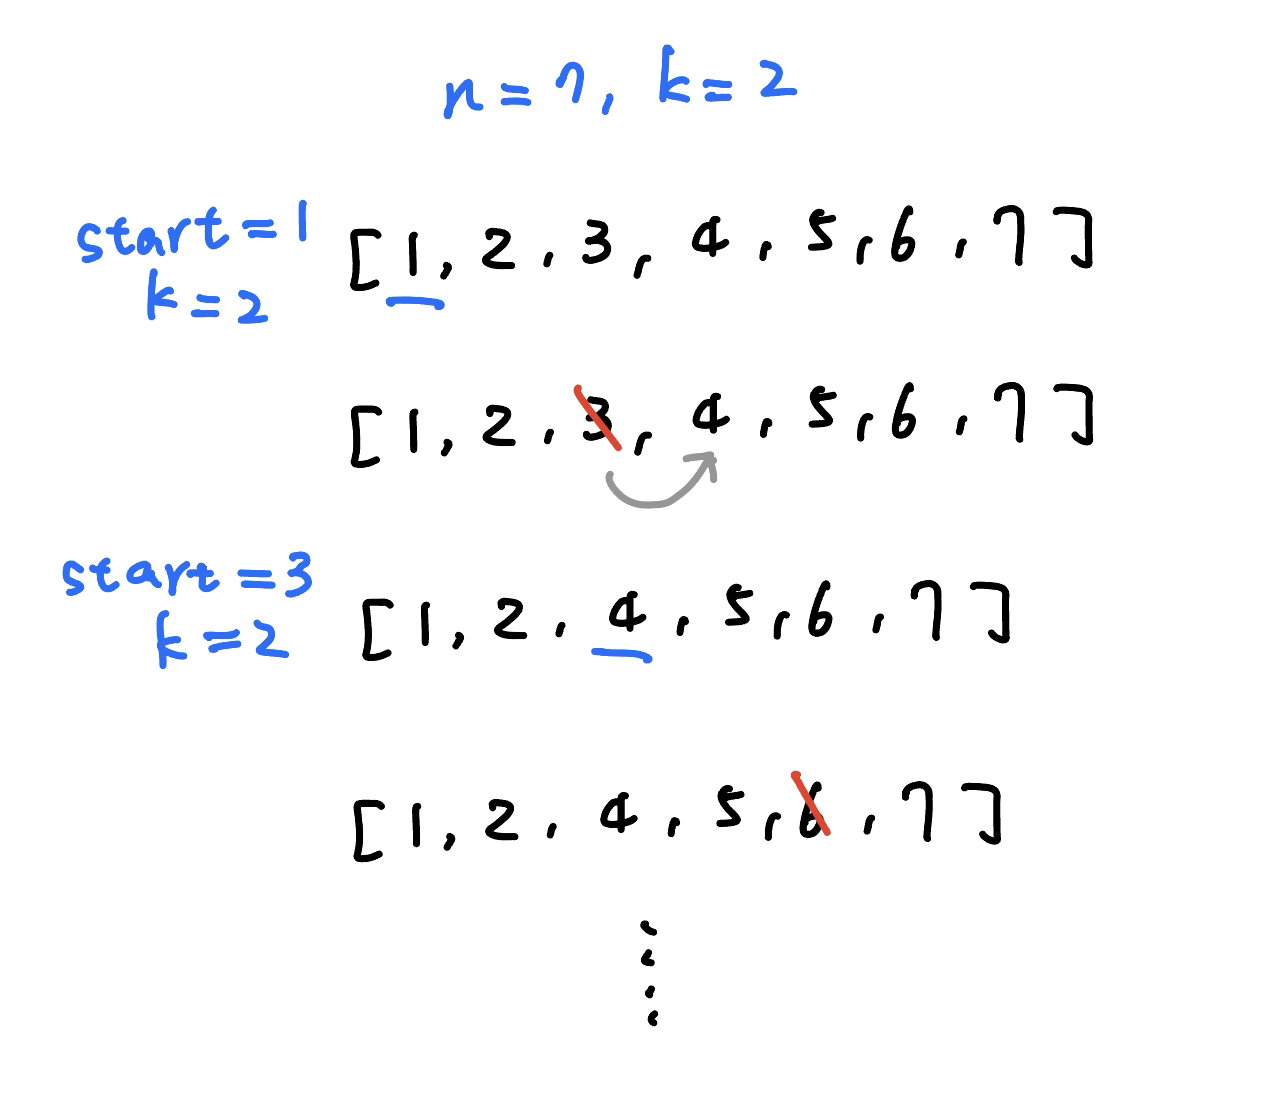 n = 7, k = 2
start = 1 [1, 2, 3, 4, 5, 6, 7]
k = 2
[1, 2, 3, 4, 5, 6, 7]
start = 3 [1, 2, 4, 5, 6, 7]
k = 2
[1, 2, 4, 5, 6, 7]